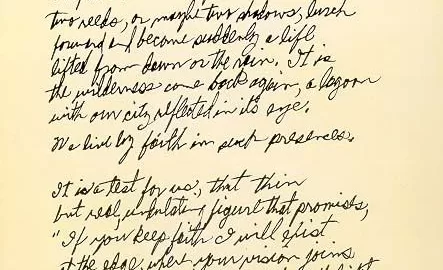 two reeds, or maybe two shadows, lurch
forward and become suddenly a life
lifted from dawn or the rain. It is
the wilderness come back again, a lagoon
with our city reflected in its eye.
We live by faith in such presences.
It is a test for us, that thin
but real, undulating figure that promises,
"If you keep faith I will exist
at the edge, where your vision joins